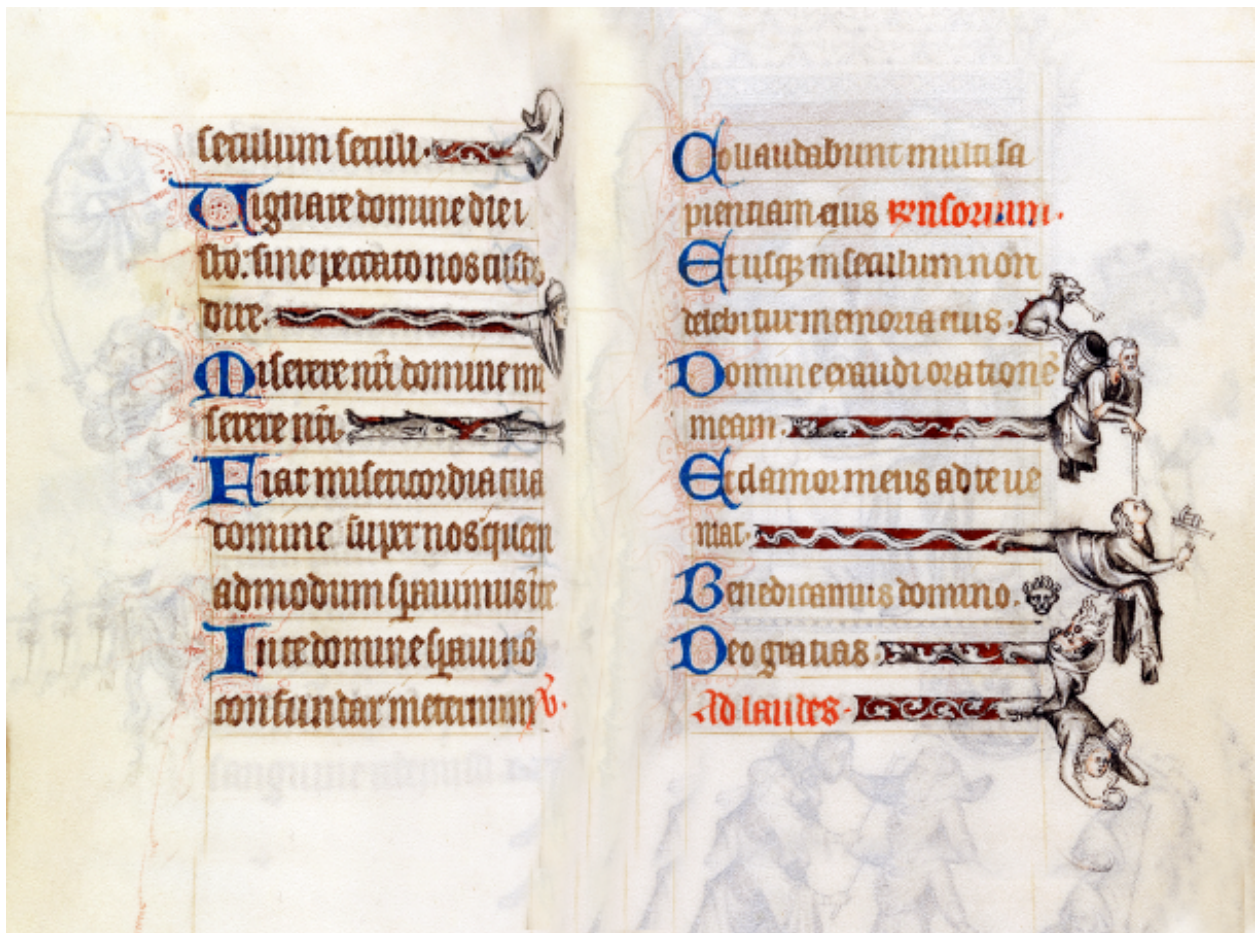 seculum seculi.
Dignare domine die i
sto: sine peccato nos custo
dire.
Miserere nr̄i domine mi
serere nr̄i.
Fiat misericordia tua
domine super nos quem
admodum sperauimus in te
In te domine speraui nō
confundar in eternum V̄.
Collaudabunt multi sa
pientiam eius
Et usqꝫ in seculum non
delebitur memoria eius.
Domine exaudi orationē
meam.
Et clamor meus ad te ue
niat.
Benedicamus domino.
Deo gratias.
Ad laudes.